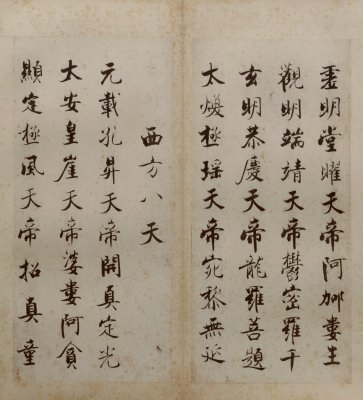 虛明堂曜天帝阿那婁生
觀明端靖天帝鬱密羅千
玄明恭慶天帝龍羅菩題
太煥極瑤天帝宛黎無延
西方八天
元載孔昇天帝開真定光
太安皇崖天帝婆婁阿貪
顯定極風天帝招真童